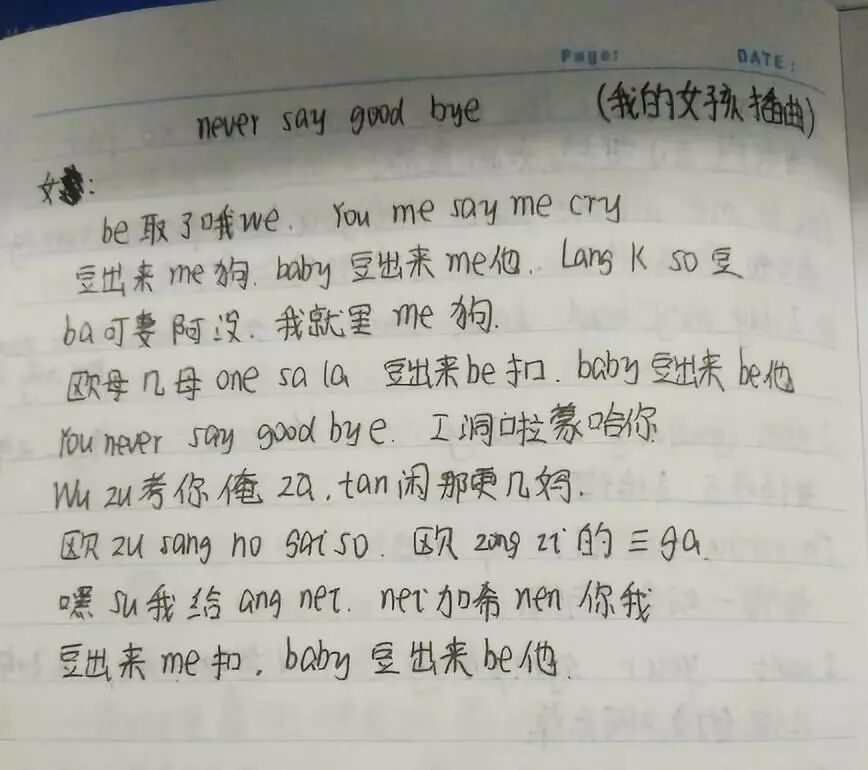 Page:
DATE:
never say good bye (我的女孩插曲)
女:
be取了哦we. You me say me cry
豆出来me狗. baby 豆出来me他. Lang K so 豆
ba可妻阿没. 我就里me狗.
欧母几母one sa la 豆出来be扣. baby 豆出来be他
You never say good bye. 工洞啦蒙哈你
Wu zu考你俺za, tan闲那更几妈.
欧zu sang no sai so. 欧zong zi的三ga.
嘿su我给ang nei. nei加希nen你我
豆出来me扣. baby 豆出来be他.